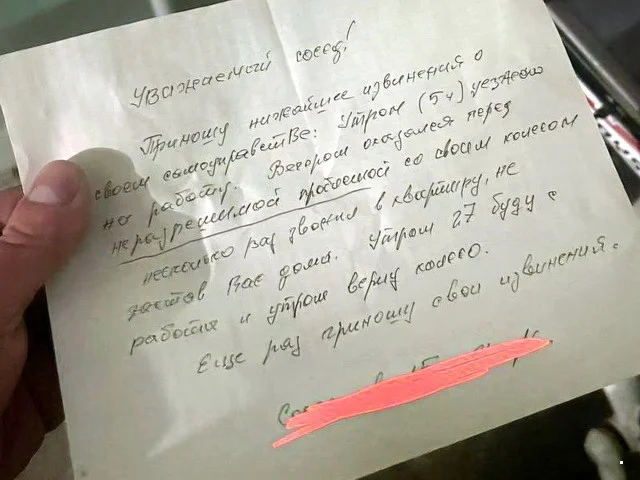 Уважаемый сосед!
Приношу нижайшие извинения о
своем самоуправстве: Утром (5ч) уезжаю
на работу. Вечером оказался перед
неразрешимой проблемой со своим колесом
несколько раз звонил в квартиру, не
застав Вас дома. Утром 27 буду с
работы и утром верну колесо.
Еще раз приношу свои извинения.